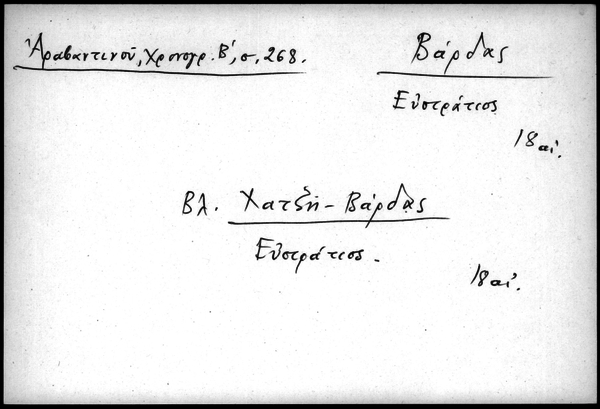 Ἀραβαντινοῦ, Χρονογρ. Β', σ. 268.
Βάρδας
Εὐστράτιος
18 αἰ.
Βλ. Χατζῆ-Βάρδας
Εὐστράτιος.
18 αἰ.